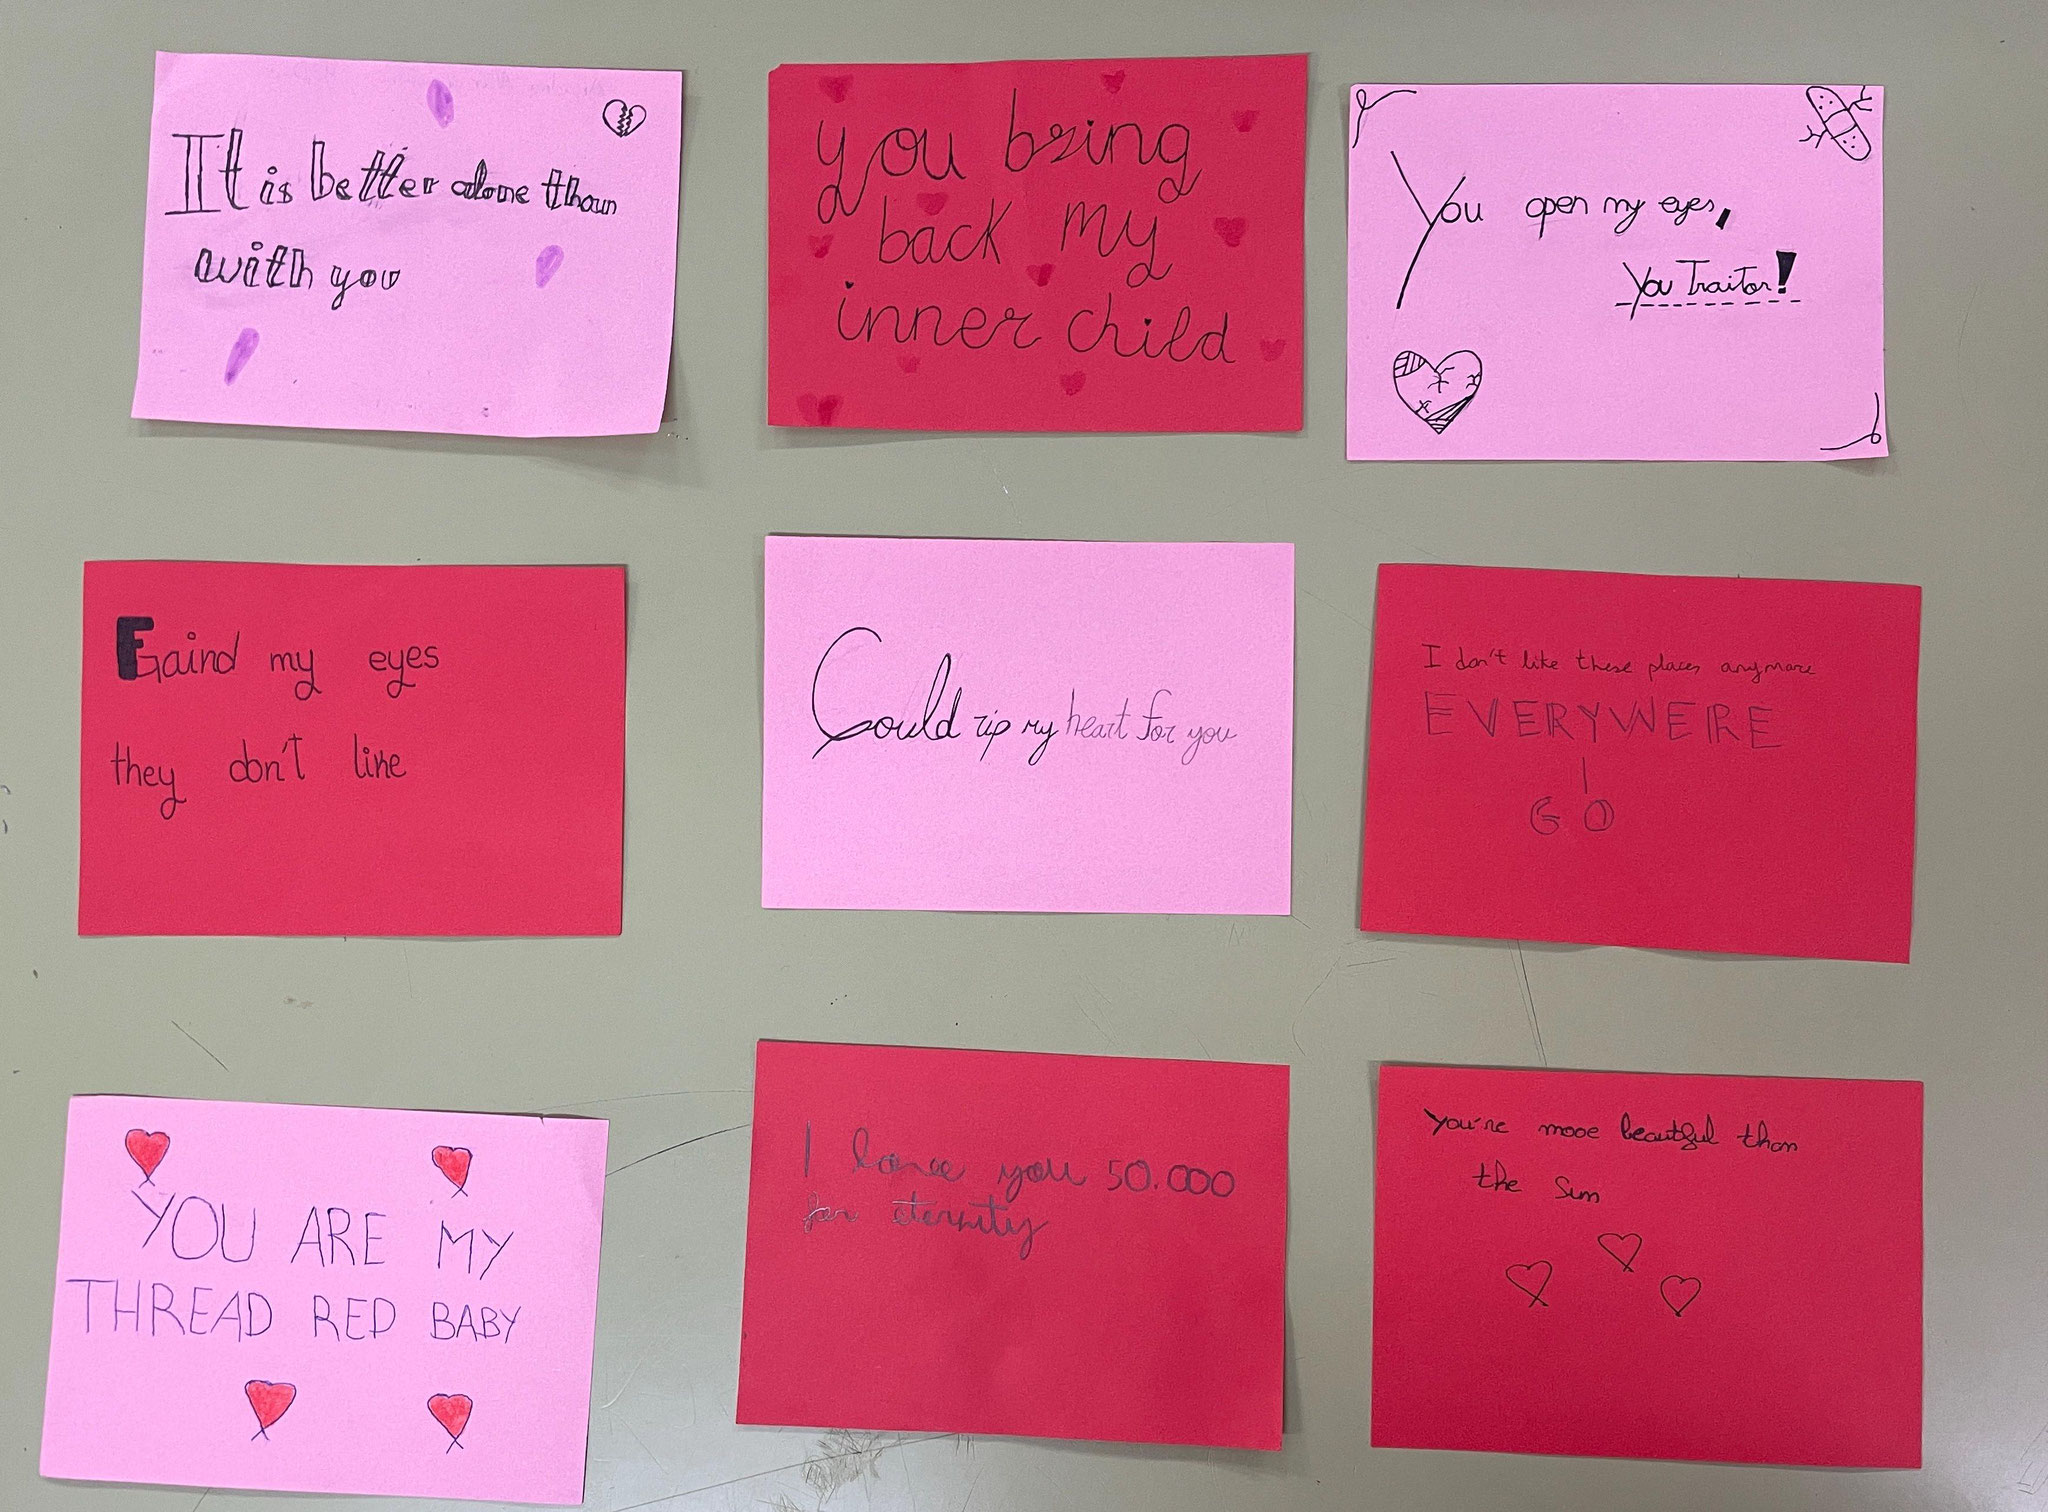 It is better alone than
with you
you bring
back my
inner child
You open my eyes,
You Traitor!
my eyes
they don't like
Could rip my heart for you
I don't like these places anymore
EVERYWERE
I
GO
YOU ARE MY
THREAD RED BABY
I love you 50.000
for eternity
You're mooe beautiful than
the Sun